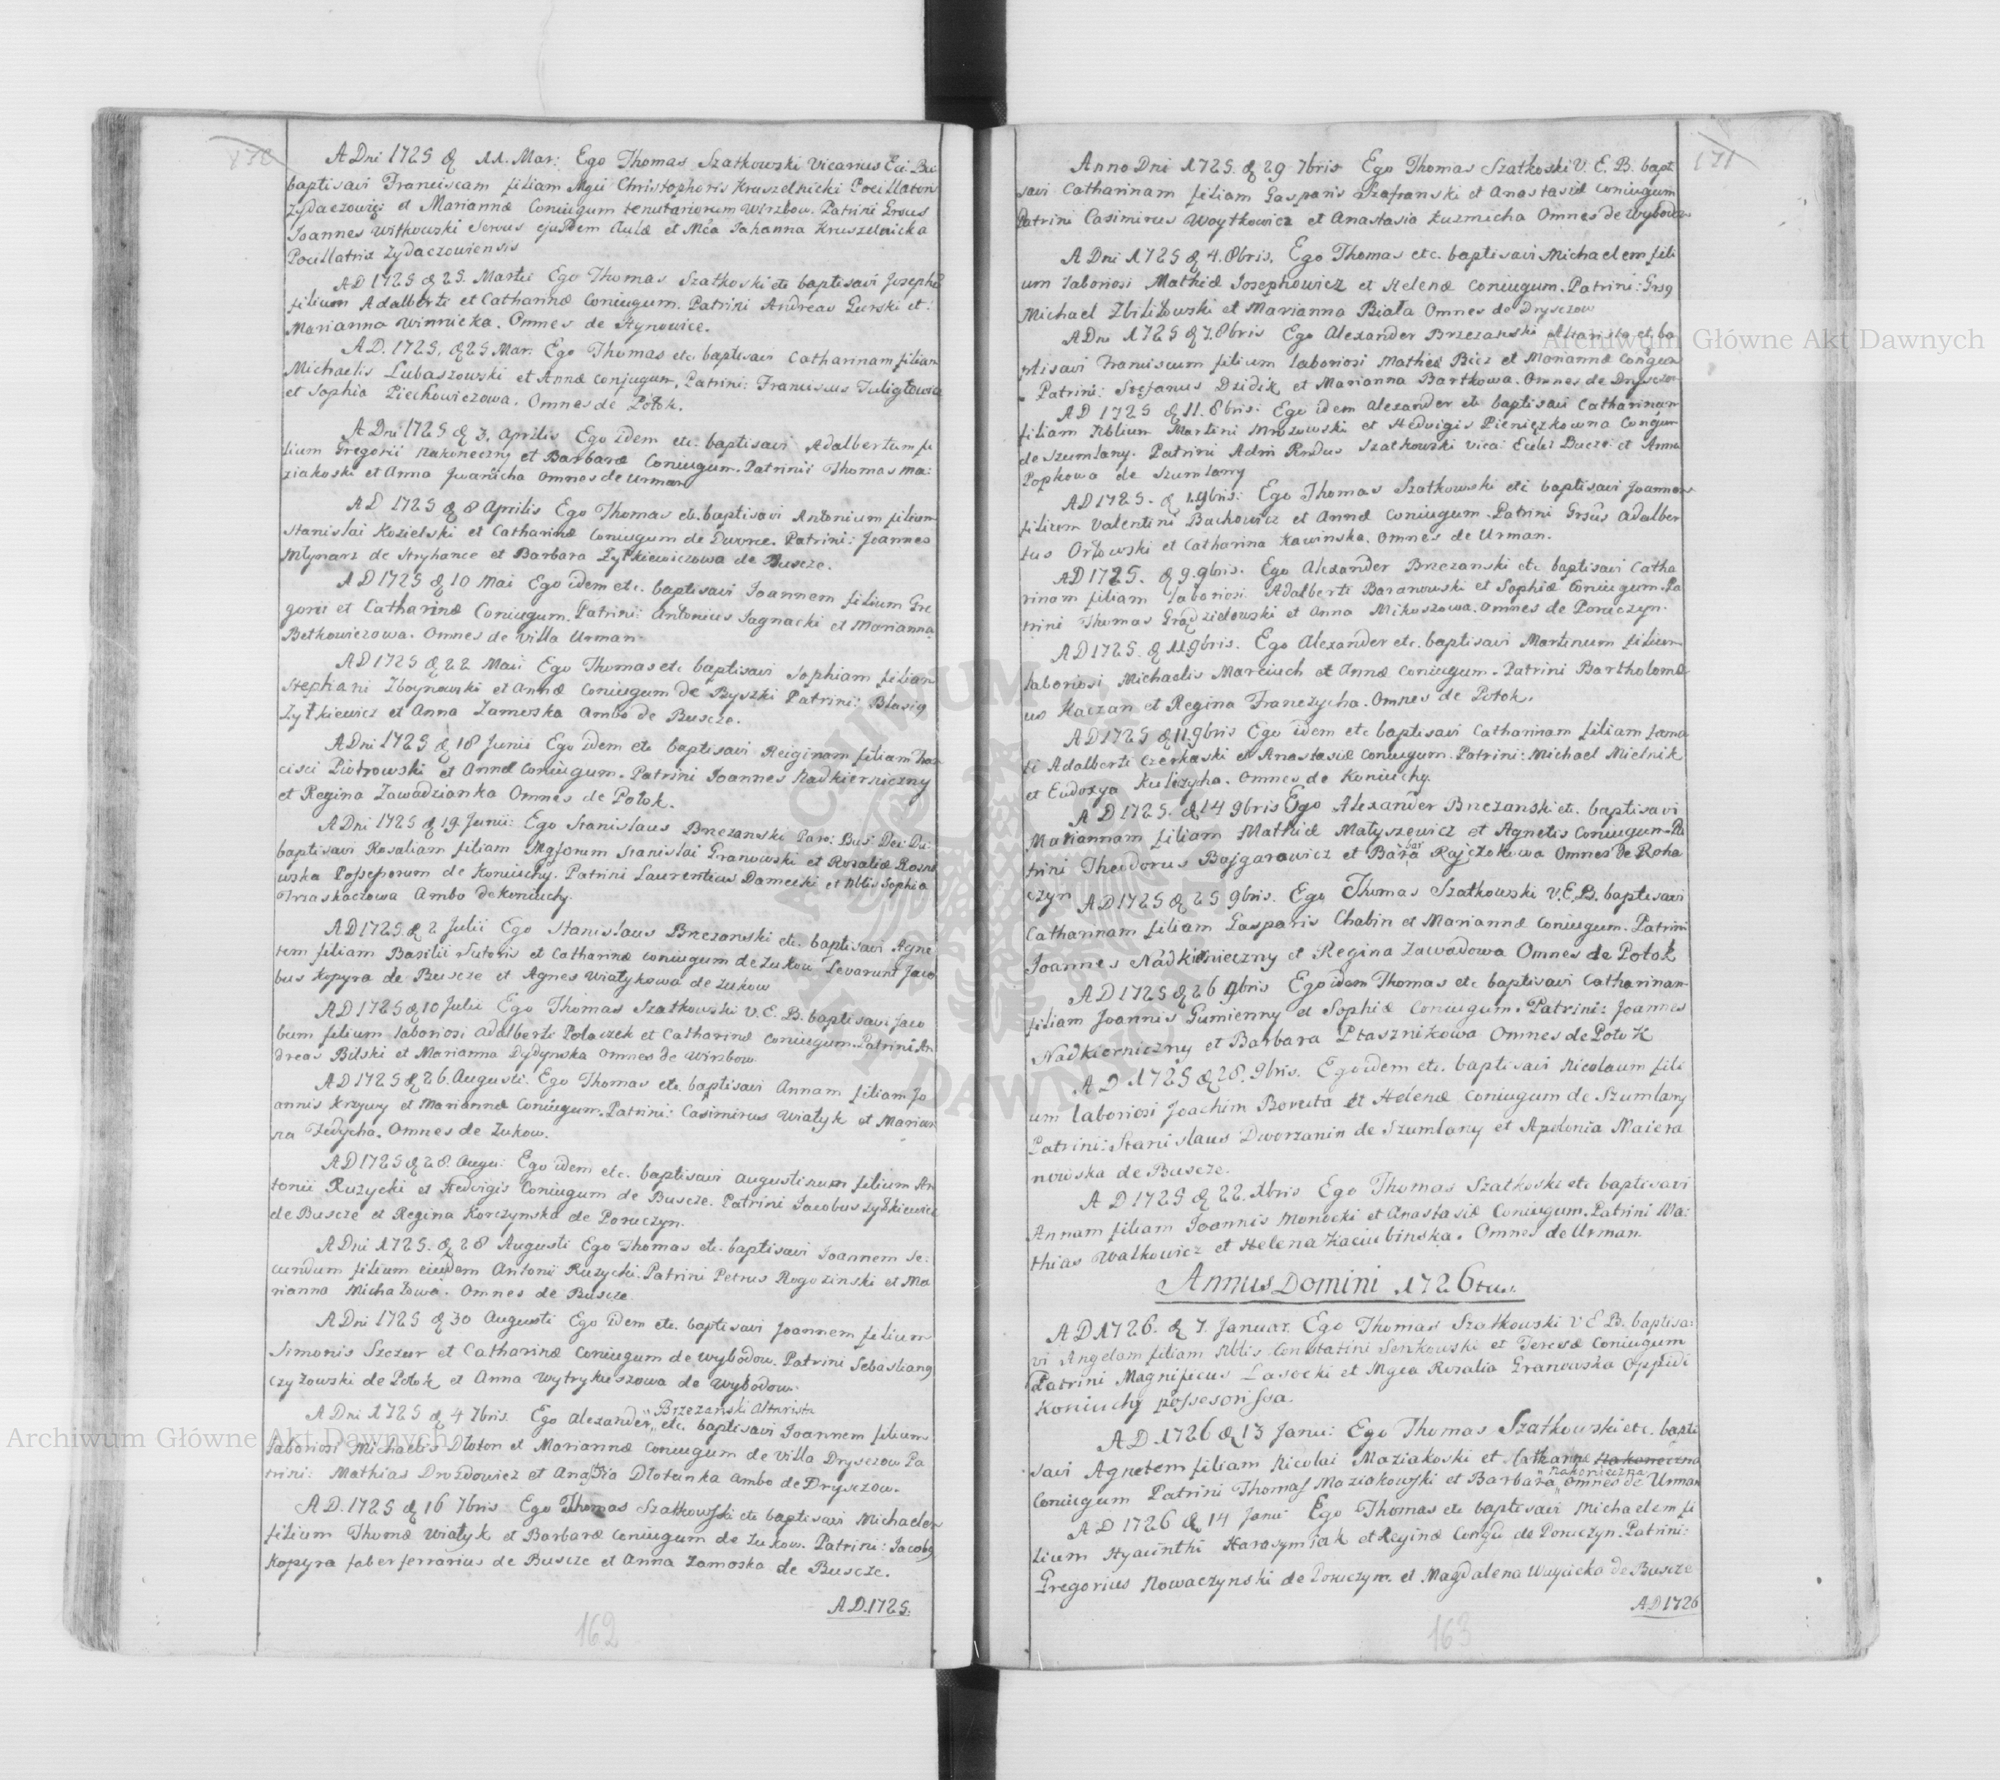 170
A Dni 1725 d 11. Mar: Ego Thomas Szatkowski Vicarius Ecl. Bu
baptisavi Franciscam filiam Mgci Christophoris Kruszelnicki Pocillatoris
Zydaczowięs et Mariannæ Coniugum tenutariorum Wirzbow. Patrini Grsus
Joannes Witkowski Servus ejusdem Aulæ et Mca Johanna Kruszelnicka
Pocillatrix Zydaczowiensis
AD 1725 d 25. Martii Ego Thomas Szatkoski etc baptisavi Josephū
filium Adalberti et Catharinæ Coniugum. Patrini Andreas Gurski et:
Marianna Winnicka. Omnes de Hynowice.
A D. 1725. d 25 Mar. Ego Thomas etc. baptisavi Catharinam filiam
Michaelis Lubaszowski et Annæ conjugum, Patrini: Franciscus Tuligłowicz
et Sophia Piechowiczowa. Omnes de Potok.
A Dni 1725 d 3. Aprilis Ego idem etc. baptisavi Adalbertum fi
lium Gregorii Nakoneczny et Barbaræ Coniugum. Patrinii Thomas Ma:
ziakoski et Anna Jwanicha Omnes de Urman
A D 1725 d 8 Aprilis Ego Thomas etc. baptisavi Antonium filium
Stanislai Kozielski et Catharinæ Coniugum de Dworce. Patrini: Joannes
Młynarz de Stryhance et Barbara Zytkiewiczowa de Buscze.
A D 1725 d 10 Mai Ego idem etc. baptisavi Joannem filium Gre
gorii et Catharinæ Coniugum. Patrini: Antonius Jagnacki et Marianna
Betkowiczowa. Omnes de villa Urman
AD 1725 d 22 Maii Ego Thomas etc baptisavi Sophiam filiam
Stephani Zboynowski et Annæ Coniugum de Byszki Patrini: Blasig
Zytkiewicz et Anna Zamoska Ambo de Buscze.
A Dni 1725 d 18 Junii Ego idem etc baptisavi Reiginam filiam Fran
cisci Piotrowski et Annæ Coniugum. Patrini Joannes Nadkierniczny
et Regina Zawadzianka Omnes de Potok.
A Dni 1725 d 19 Junii: Ego Stanislaus Brzezanski Paro: Bus: Dei: Du:
baptisavi Rosaliam filiam Mgforum Stanislai Granowski et Rozaliæ Rosno
wska Possessorum de Koniuchy. Patrini Laurentius Damecki et Nblis Sophia
Trzaskaczowa Ambo de Koniuchy.
A D 1725. d 2 Julii Ego Stanislaus Brzezanski etc. baptisavi Agne
tem filiam Basilii Sutoris et Catharinæ coniugum de Zukow Levarunt Jaco
bus Kopyra de Buscze et Agnes Wiatykowa de Zukow
AD 1725 d 10 Julii Ego Thomas Szatkowski V. E. B. baptisavi Jaco
bum filium laboriosi Adalberti Polaczek et Catharinæ Coniugum. Patrini An
dreas Bilski et Marianna Dydynska Omnes de Wirzbow
A D 1725 d 26. Augusti. Ego Thomas etc. baptisavi Annam filiam Jo
annis Krzywy et Mariannæ Coniugum. Patrini: Casimirus Wiatyk et Marian
na Fedycha. Omnes de Zukow.
A D 1725 d 28. Augu: Ego idem etc. baptisavi Augustinum filium An
tonii Ruzycki et Hedvigis Coniugum de Buscze. Patrini Jacobus Zytkiewicz
de Buscze et Regina Korczynska de Poruczyn.
A Dni 1725. d 28 Augusti Ego Thomas etc. baptisavi Joannem Se:
cundum filium eiusdem Antonii Ruzycki. Patrini Petrus Rogozinski et Ma
rianna Michałowa. Omnes de Buscze
A Dni 1725 d 30 Augusti Ego idem etc. baptisavi Joannem filium
Simonis Szczur et Catharinæ Coniugum de Wybodow. Patrini Sebastiang
Czyżowski de Potok et Anna Wytrykuszowa de Wybodow.
A Dni 1725 d 4 7bris. Ego Alexander „ Brzezanski Altarista „ etc. baptisavi Joannem filium
laboriosi Michaelis Dłoton et Mariannæ Coniugum de Villa Dryszow Pa
trini: Mathias Drozdowicz et Anastia Dłotunka Ambo de Dryszow.
A D. 1725 d 16 7bris Ego Thomas Szatkowski etc baptisavi Michaelem
filium Thomæ Wiatyk et Barbaræ Coniugum de Zukow. Patrini: Jacobg
Kopyra faber ferrarius de Buscze et Anna Zamoska de Buscze.
A D. 1725.
162
171
Anno Dni 1725. d 29 7bris Ego Thomas Szatkoski V. E. B. bapti
savi Catharinam filiam Gasparis Szafranski et Anastasiæ Coniugum
Patrini Casimirus Woytkowicz et Anastasia Kuzmicha Omnes de Wybodow
A Dni 1725 d 4. 8bris. Ego Thomas etc. baptisavi Michaelem fili
um laboriosi Mathiæ Josephowicz et Helenæ Coniugum. Patrini: Grsg
Michael Zbilitowski et Marianna Biała Omnes de Dryszow
A Dni 1725 d 7. 8bris Ego Alexander Brzezanski Altarista etc. ba
ptisavi Franciscum filium laboriosi Mathei Bicz et Mariannæ Congum
Patrini: Stefanus Dzidik et Marianna Bartkowa. Omnes de Dryszow
A D 1725 d 11. 8bris: Ego idem Alexander etc baptisavi Catharinam
filiam Nblium Martini Mrozowski et Hedvigis Pieniążkowna Congum
de Szumlany. Patrini Adm Rndus Szatkowski Vica: Eccle Bucze: et Anna
Popkowa de Szumlany
A D 1725. d 1. 9bris: Ego Thomas Szatkowski etc baptisavi Joannem
filium Valentini Bachowicz et Annæ Coniugum. Patrini Grsus Adalber
tus Orłowski et Catharina Kawinska. Omnes de Urman.
A D 1725. d 9. 9bris. Ego Alexander Brzezanski etc. baptisavi Catha
rinam filiam laboriosi Adalberti Baranowski et Sophiæ Coniugum. Pa
trini Thomas Grądzielowski et Anna Mikoszowa. Omnes de Poruczyn.
A D 1725. d 11 9bris. Ego Alexander etc. baptisavi Martinum filium
laboriosi Michaelis Marciuch et Annæ Coniugum. Patrini Bartholomæ
us Kaczan et Regina Franczycha. Omnes de Potok.
A D 1725 d 11 9bris Ego idem etc baptisavi Catharinam filiam fama
ti Adalberti Czerkaski et Anastasiæ Coniugum. Patrini: Michael Mielnik
et Eudoxya Kuliżycha. Omnes de Koniuchy.
A D 1725. d 14 9bris Ego Alexander Brzezanski etc. baptisavi
Mariannam filiam Mathiæ Matyszewicz et Agnetis Coniugum. Pa
trini Theodorus Boygarowicz et Barbara Rajczokowa Omnes de Roha
czyn
A D 1725 d 25 9bris. Ego Thomas Szatkowski V. E. B. baptisavi
Catharinam filiam Gasparis Chabin et Mariannæ Coniugum. Patrini
Joannes Nadkiernieczny et Regina Zawadowa Omnes de Potok
A D 1725 d 26 9bris Ego idem Thomas etc baptisavi Catharinam
filiam Joannis Gumienny et Sophiæ Coniugum. Patrini: Joannes
Nadkierniczny et Barbara Ptasznikowa Omnes de Potok
A D 1725 d 28. 9bris. Ego idem etc. baptisavi Nicolaum fili
um laboriosi Joachim Boruta et Helenæ Coniugum de Szumlany
Patrini: Stanislaus Dworzanin de Szumlany et Apolonia Maiera
nowska de Buscze.
A D 1725 d 22. Xbris Ego Thomas Szatkoski etc baptisavi
Annam filiam Joannis Monocki et Anastasiæ Coniugum. Patrini Ma:
thias Walkowicz et Helena Kaciubinska. Omnes de Urman.
Annus Domini 1726tus.
A D 1726. d 7. Januar. Ego Thomas Szatkowski V E B. baptisa:
vi Angelam filiam Nblis Constatini Senkowski et Teresæ Coniugum
Patrini Magnificus Lasocki et Mgca Rozalia Granowska Oppidi
Koniuchy possesorissa.
A D 1726 d 13 Janu: Ego Thomas Szatkowski etc. bapti
savi Agnetem filiam Nicolai Maziakoski et Catharinæ Nakoneczna
Coniugum Patrini Thomas Maziakowski et Barbara „ Nakonieczna „ Omnes de Urman
A D 1726 d 14 Janii Ego Thomas etc baptisavi Michaelem fi
lium Hyacinthi Harasymiak et Reginæ Congū de Poruczyn. Patrini:
Gregorius Nowaczynski de Poruczyn. et Magdalena Wuycicka de Buscze
A D 1726
163
Archiwum Główne Akt Dawnych
Archiwum Główne Akt Dawnych